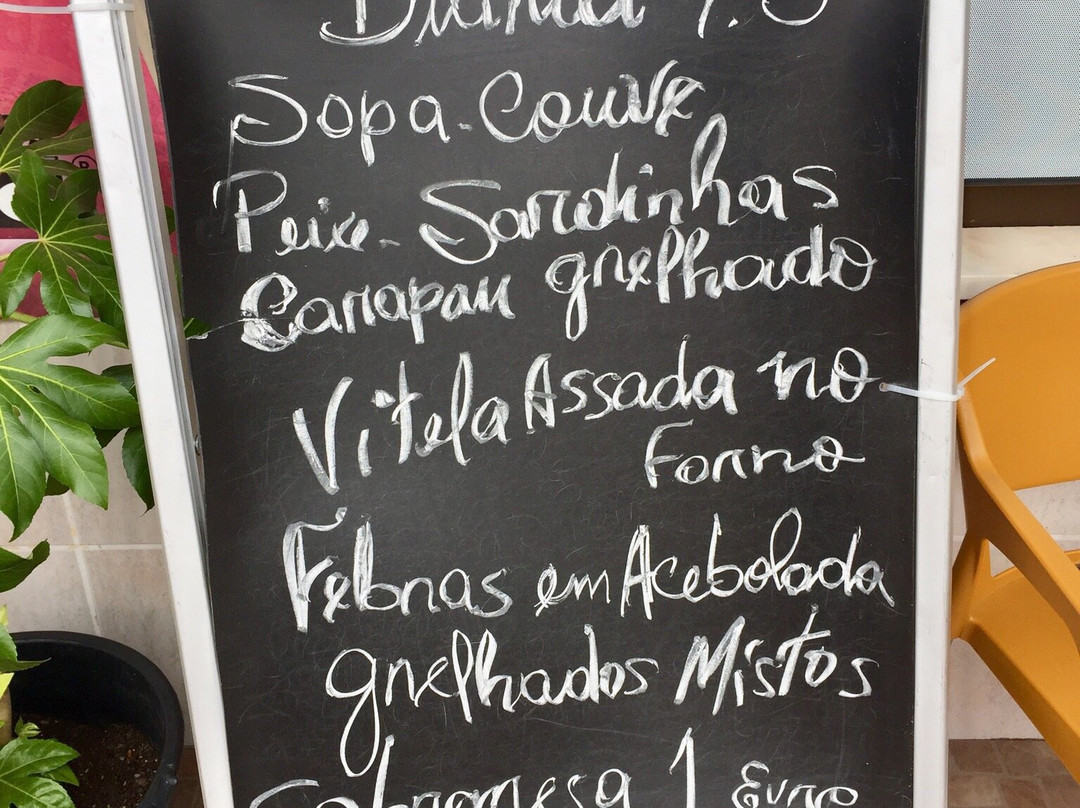 Sopa. Couve
Peixe - Sardinhas
Carapau grelhado
Vitela Assada no
Forno
Febras em Acebolada
grelhados Mistos
Sobremesa 1 Euro